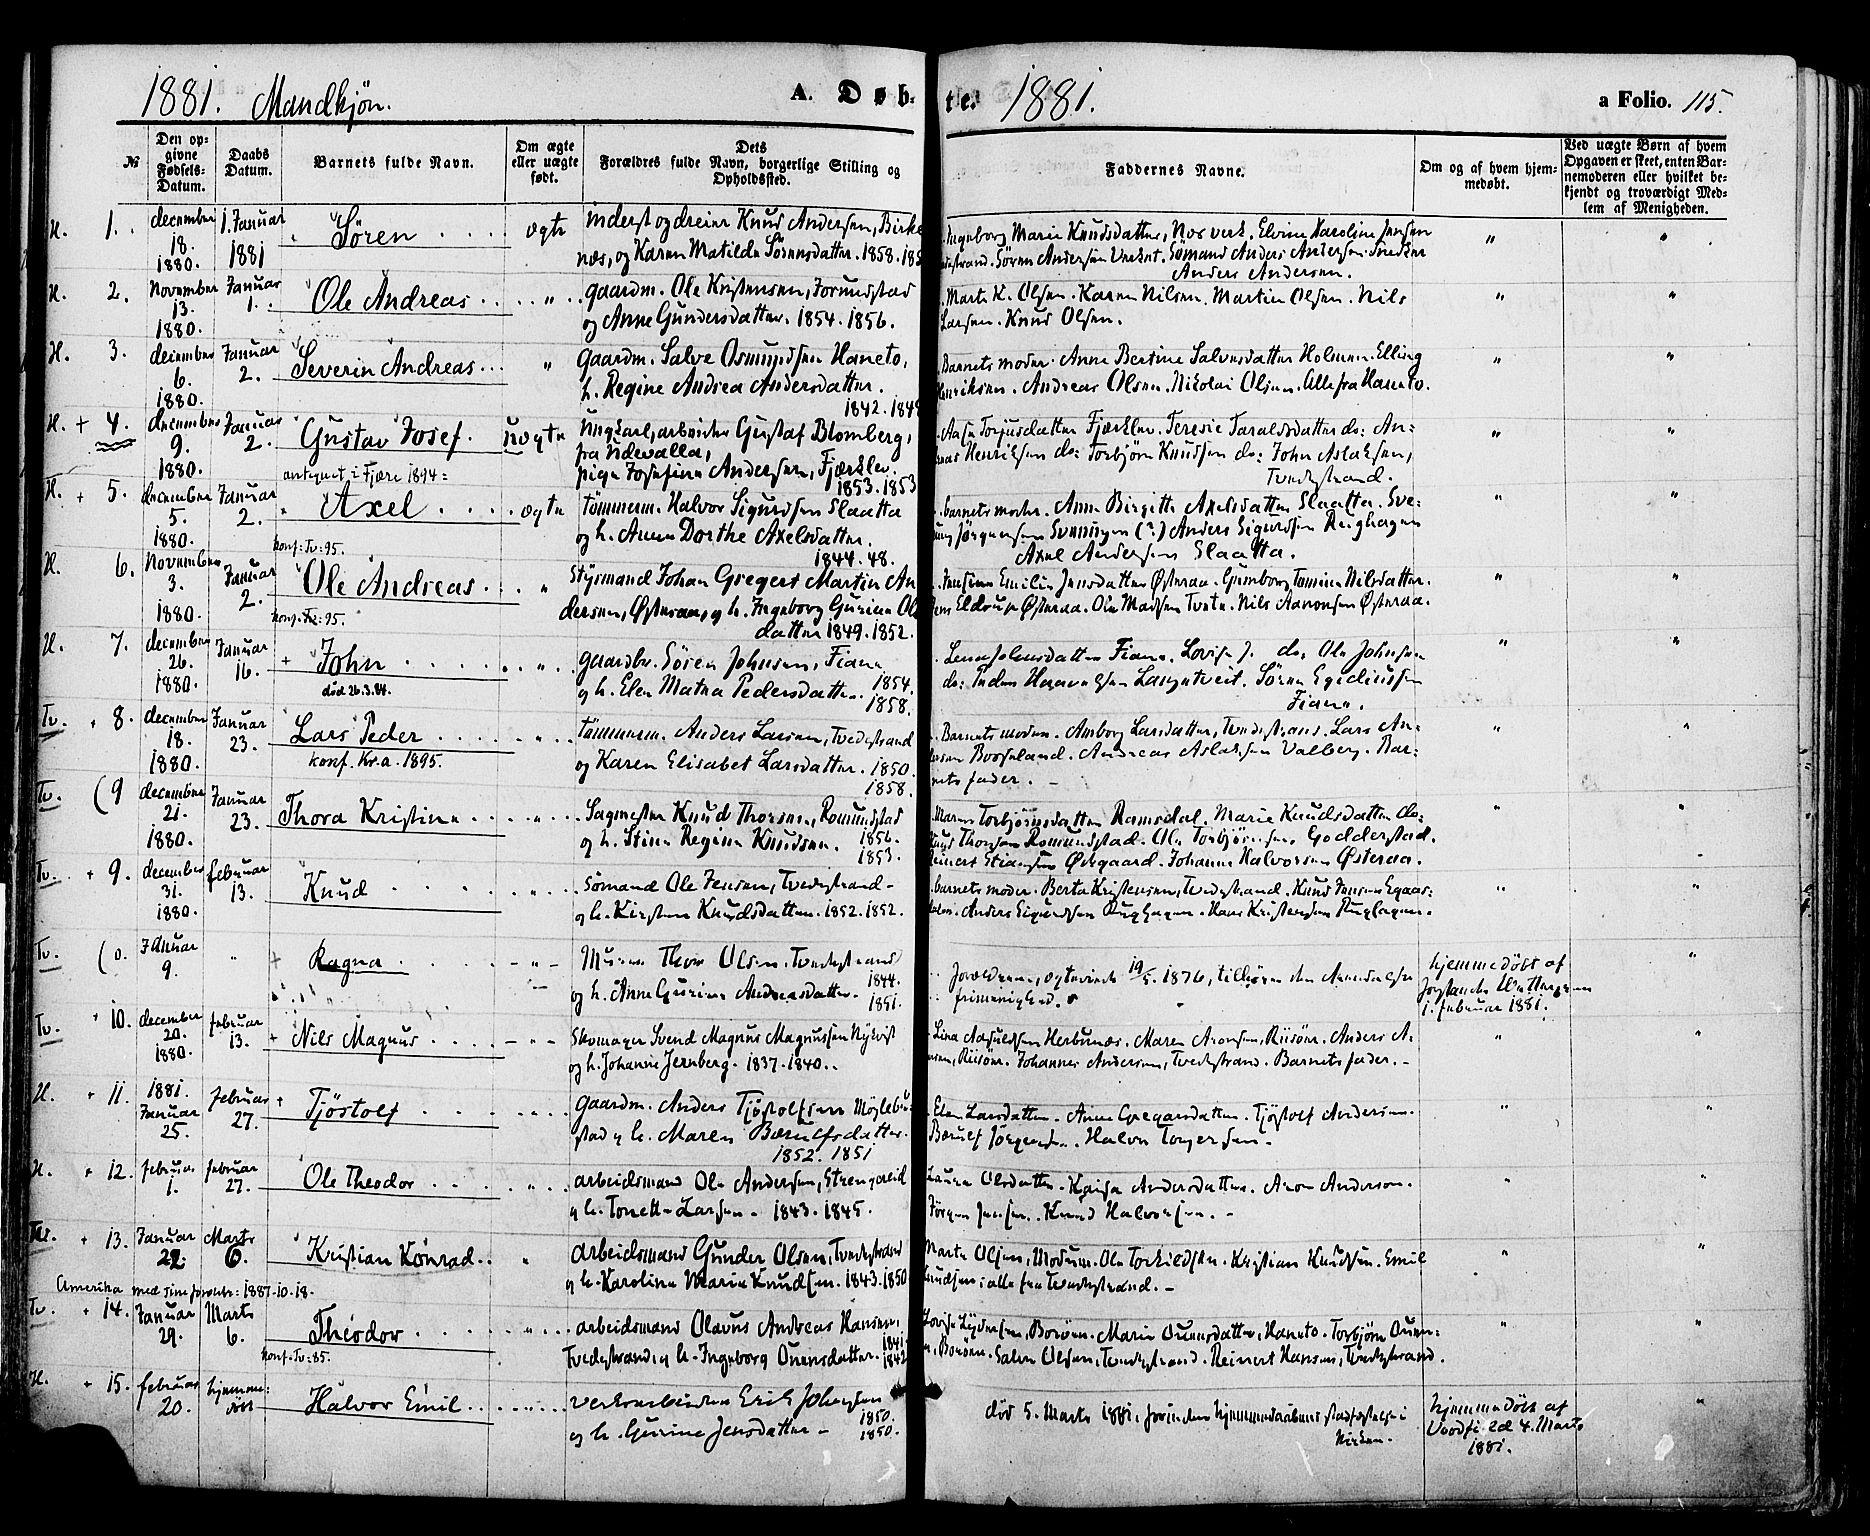 1881. Mandkjøn. A. Døb- te. 1881. a Folio. 115.
№ Den opgivne Fødsels-Datum. Daabs Datum. Barnets fulde Navn. Om ægte eller uægte født. Dets Forældres fulde Navn, borgerlige Stilling og Opholdssted. Faddernes Navne. Om og af hvem hjemmedøbt. Ved uægte Børn af hvem Opgaven er skeet, enten Barnemoderen eller hvilket bekjendt og troværdigt Medlem af Menigheden.
H. 1. december 18. 1880. 1. Januar 1881 Sören ægte Inderst og dreier Knud Andersen, Birke
næs, og Karen Matilde Sörensdatter. 1858.
Ingeborg Marie Knudsdatter, Næs verk. Elvine Karoline Jensen
Sören Andersen Verket. Sömand Anders Andersen. Snedker
Anders Andersen.
H. 2. November 13. 1880. Januar 1. Ole Andreas " gaardm. Ole Kristensen, Forundstad
og Anne Gundersdatter. 1854. 1856.
Marte K. Olsen. Karen Nilsen. Martin Olsen. Nils
Larsen. Knud Olsen.
H. 3. december 6. 1880. Januar 2. Severin Andreas " gaardm. Salve Osmundsen Haneto,
h. Regine Andrea Andersdatter.
1842. 1849
Barnets moder. Anne Bertine Salvesdatter Holmen. Elling
Henriksen. Andreas Olsen. Nikolai Olsen. Alle fra Haneto.
H. + 4. december 9. 1880. Januar 2. Gustav Josef. uægte Ungkarl, arbeider Gustaf Blomberg,
fra Udevalla,
pige Josefine Andersen, Fjærklev.
1853. 1853
antegnet i Fjære 1894:
Aase Torjusdatter Fjærklev. Teresie Taraldsdatter do: An:
Henriksen do: Torbjörn Knudsen do: John Aslaksen,
Tvedestrand.
H. + 5. december 5. 1880. Januar 2. Axel ægte tömmerm. Halvor Sigurdsen Slaatta
og h. Anne Dorthe Axelsdatter.
1844. 48.
konf: Tv: 95.
barnets moder. Anne Birgitte Axelsdatter Slaatta. Sve-
Jörgensen Svenningen (?) Anders Sigurdsen Rughagen
Axel Andersen Slaatta.
H. 6. November 3. 1880. Januar 2. Ole Andreas " Styrmand Johan Gregert Martin An
dersen, Österaa, og h. Ingeborg Gurine Ol
datter 1849. 1852.
konf: Tv: 95.
Emilie Jensdatter Österaa. Gunborg Tomine Nilsdatter.
Eldrup Österaa. Ole Madsen Tveite. Nils Aaronsen Österaa.
H. 7. december 26. 1880. Januar 16. + John " gaardbr. Sören Johnsen, Fiane
og h. Elen Matea Pedersdatter. 1854.
1858.
död 26.3.84.
Lene Johnsdatter Fiane. Lovise J. do: Ole Johnsen
do: Peder Haavelsen Langetveit. Sören Egidiussen
Fiane.
Tv. + 8. december 18. 1880. Januar 23. Lars Peder " Tömmerm. Anders Larsen, Tvedestrand
og Karen Elisabet Larsdatter. 1850.
1858.
konf. Kr.a. 1895.
Barnets moder. Amborg Larsdatter, Tvedestrand. Lars An-
dersen Boreland. Andreas Aslaksen Valberg. Bar-
nets fader. -
Tv. (9 december 21. 1880. Januar 23. Thora Kristine " Sagmester Knud Thorsen, Romundstad
og h. Stine Regine Knudsen. 1856.
1853.
Maren Torbjörnsdatter Ramsdal. Marie Knudsdatter do:
Knud Thorsen Romundstad. Ole Torbjörnsen, Godderstad.
Reinert Stiansen Ödegaard. Johanne Halvorsen Österaa.
Tv. + 9. december 31. 1880. februar 13. Knud " Sömand Ole Jensen, Tvedestrand-
og h. Kirsten Knudsdatter. 1852. 1852.
barnets moder. Berte Kristensen, Tvedestrand. Knud Jensen Egaas:
Anders Sigurdsen Rughagen. Hans Kristensen Rughagen.
Tv. (0. Januar 9. " + Ragna - " - Murer Thor Olsen. Tvedestrand
og h. Anne Gurine Andreasdatter. 1844.
1851.
Forældrene, ægteviede 19/5. 1876, tilhörer den Arendalske
frimenighed. hjemmedöbt af
1. februar 1881.
Tv. + 10. december 20. 1880. februar 13. + Nils Magnus - " - Skomager Svend Magnus Magnussen Nykvist
og h. Johanne Jernberg. 1837. 1840..
Lina Aasuldsen Herbunæs. Maren Aronsen, Riisöer. Anders A-
Riisöer. Johannes Andersen, Tvedestrand. Barnets fader. -
H. + 11. 1881. Januar 25. februar 27. + Tjöstolf " gaardm. Anders Tjöstolfsen Möglebu-
stad og h. Maren Bærulfsdatter.
1852. 1851
Elen Larsdatter. Anne Gregarsdatter. Tjöstolf Andersen.
Bærulf Jörgensen. Halvor Torgersen.
H. + 12. februar 1. februar 27. Ole Theodor " arbeidsmand Ole Andersen, Strengereid
og h. Tonette Larsen. 1843. 1845.
Laura Olsdatter. Kaisa Andersdatter. Aron Andersen.
Jörgen Jensen. Knud Halvorsen. -
Tv. + 13. Januar 22. Marts 6. Kristian Konrad.. " arbeidsmand Gunder Olsen, Tvedestrand
og h. Karoline Marie Knudsen. 1843. 1850
Marte Olsen, Modum. Ole Torkildsen. Kristian Knudsen. Emil
Knudsen: alle fra Tvedestrand. -
Amerika med sine forældre: 1887.10.18.
Tv. + 14. Januar 29. Marts 6. Theodor " arbeidsmand Olavus Andreas Hansen,
Tvedestrand, og h. Ingeborg Ouensdatter. 1841
1842
konf. Tv: 85.
Lovise Borøen. Marie Ouensdatter, Haneto. Torbjörn Ouen-
Borøen. Salve Olsen, Tvedestrand. Reinert Hansen, Tvedestrand.
H. + 15. februar 20. hjemme: döbt Halvor Emil " Verksarbeider Erik Johansen
og h. Gurine Jensdatter - 1850.
1850.
död 5. Marts 1881, förinden hjemmedaabens stadfæstelse i
kirken.
hjemmedöbt af
4. Marts
1881.